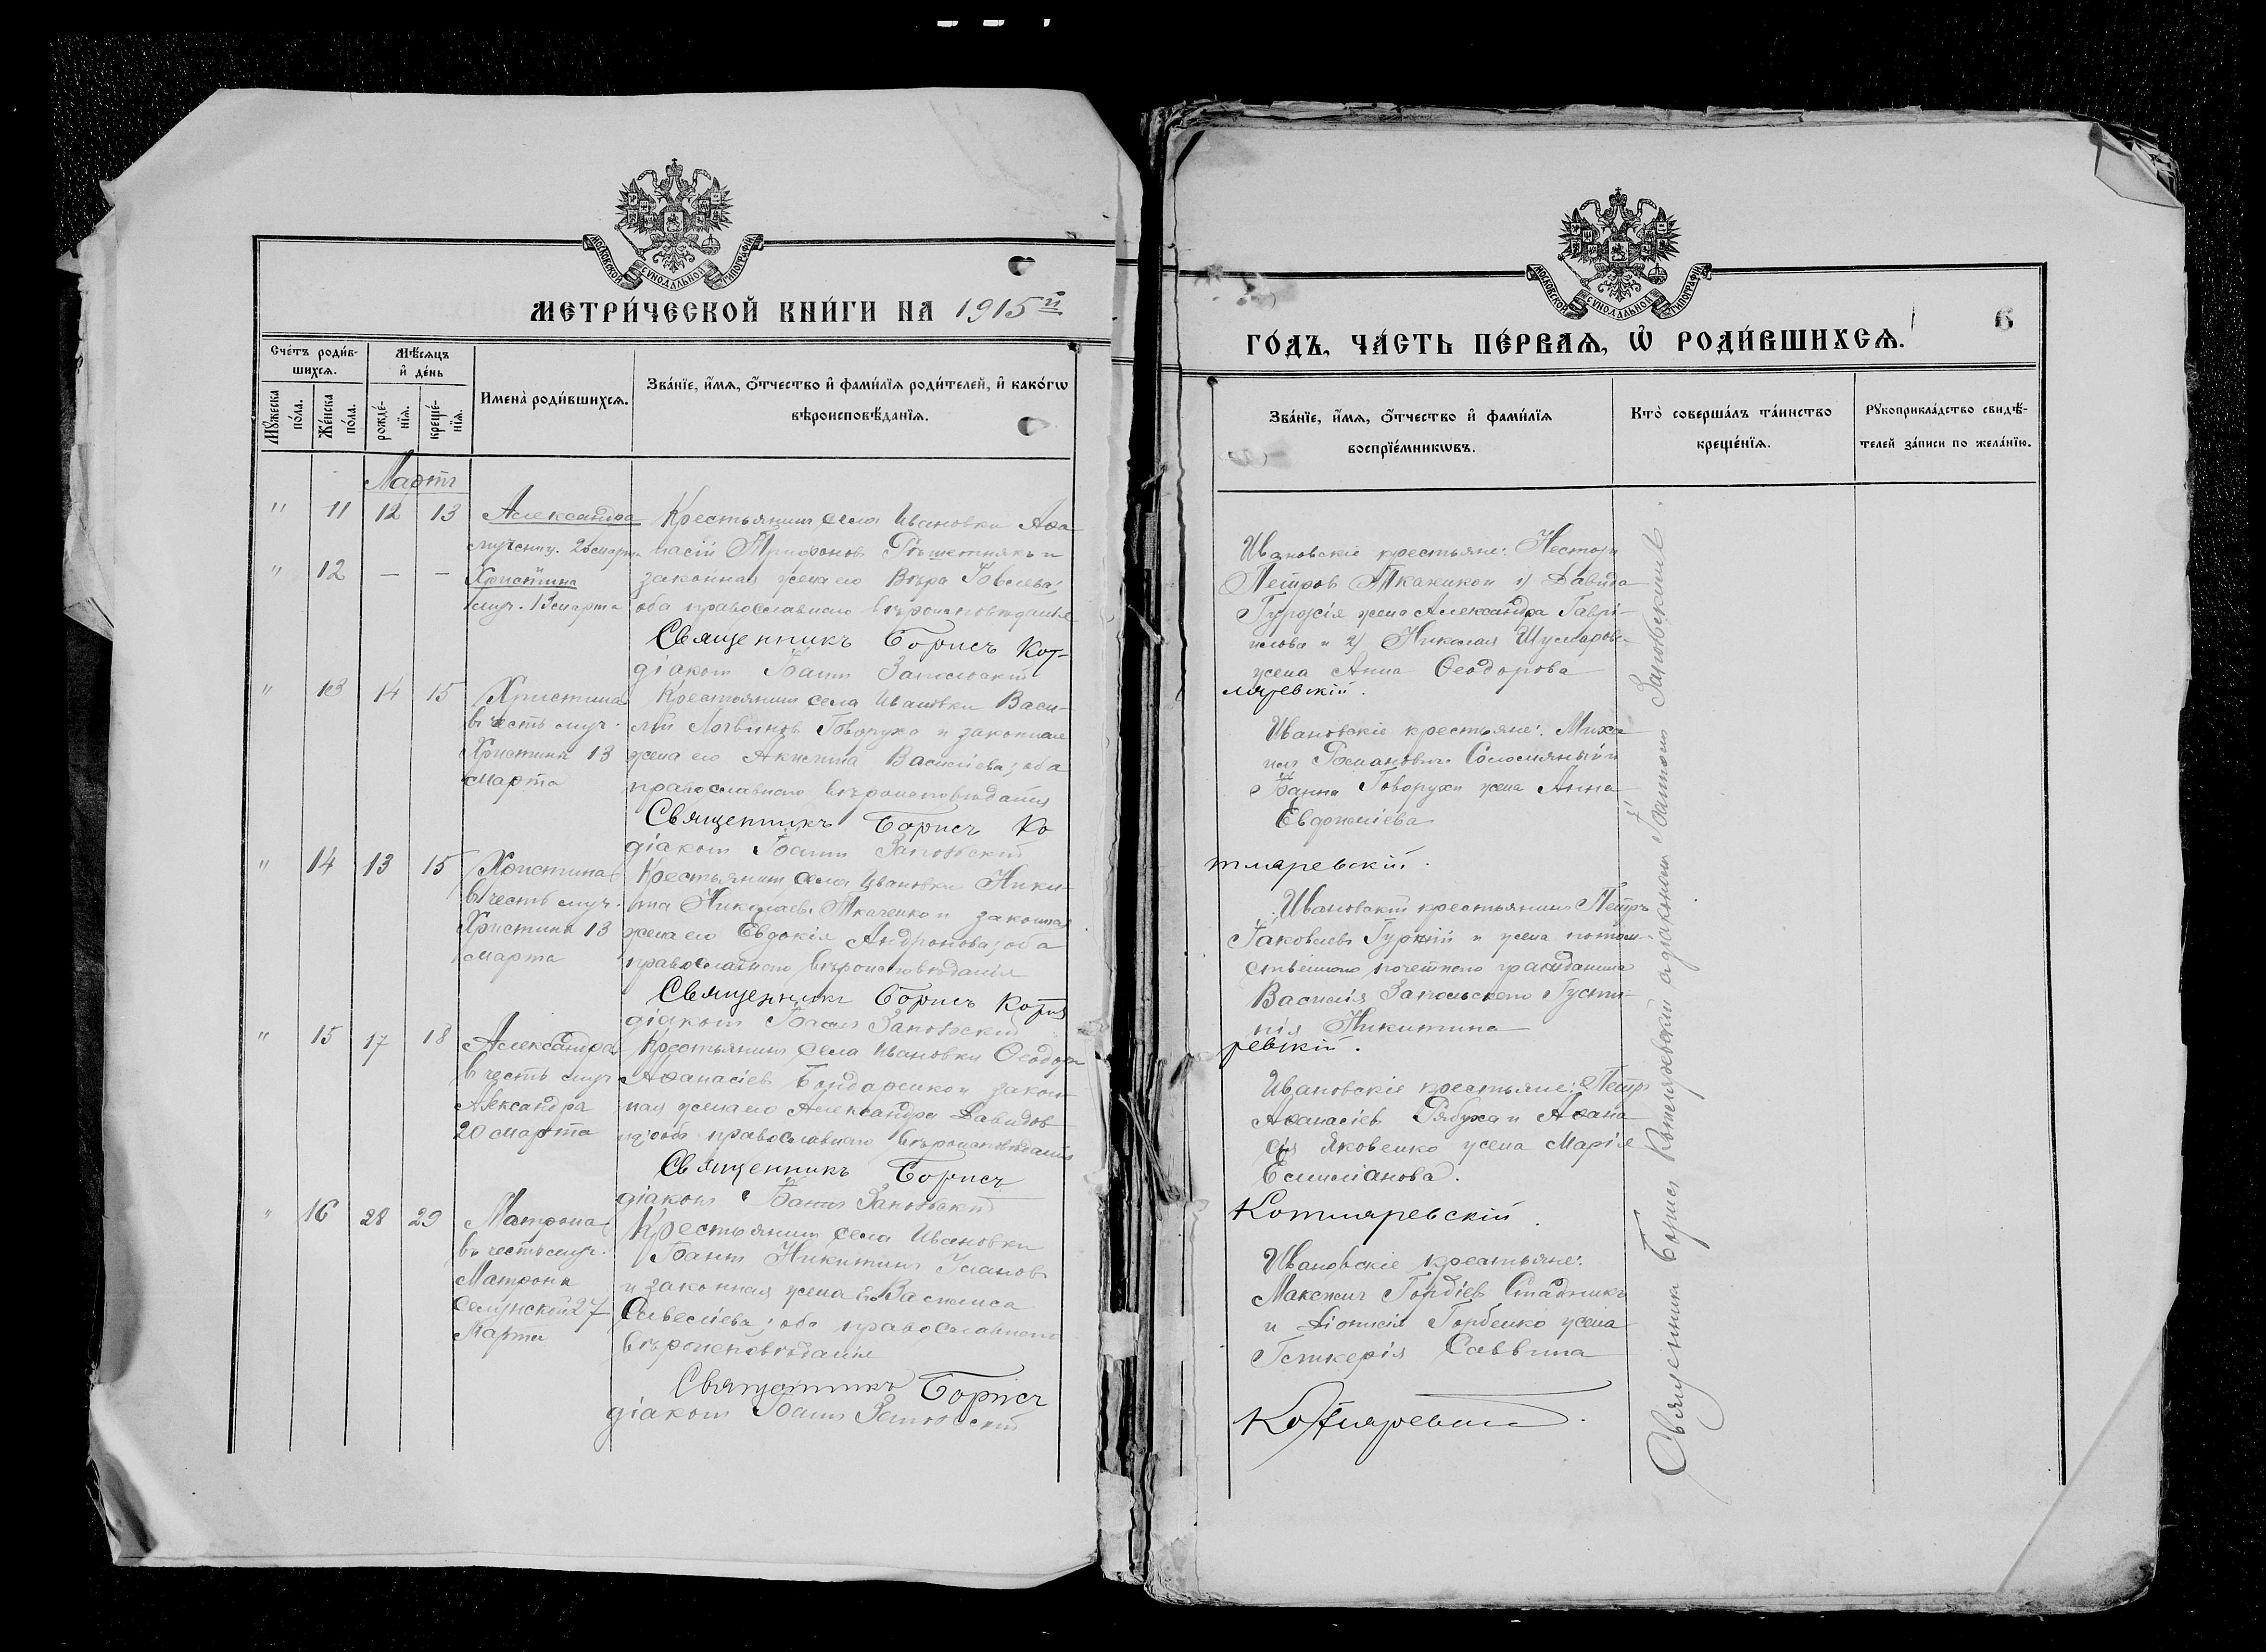 МОСКОВСКОЙ СѴНОДАЛЬНОЙ ТИПОГРАФІИ
МЕТРИ́ЧЕСКОЙ КНИ́ГИ НА 1915й
Сче́тъ роди́в-
шихсѧ.
Мѣ́сѧцъ
и҆ де́нь
Мꙋ́жеска
по́ла.
Же́нска
по́ла.
рожде́-
нїѧ.
креще́-
нїѧ.
Имена̀ роди́вшихсѧ.
Зва́нїе, и҆́мѧ, ѻ҆́тчество и҆ фами́лїѧ роди́телей, и҆ како́гѡ
вѣроисповѣ́данїѧ.
Мартъ
" 11 12 13 Александра
мучениц. 20 марта
" 12 — — Христина
муч. 13 марта
Крестьянинъ села Ивановки Аѳа
насій Трифоновъ Рѣшетнякъ и
законная жена его Вѣра Іовлева;
оба православнаго вѣроисповѣданія
Священникъ Борисъ Кот-
діаконъ Іоаннъ Запольскій
" 13 14 15 Христина
въ честь муч.
Христины 13
марта
Крестьянинъ села Ивановки Васи-
лій Логвиновъ Говоруха и законная
жена его Акилина Василіева; оба
православнаго вѣроисповѣданія
Священникъ Борисъ Ко
діаконъ Іоаннъ Запольскій
" 14 13 15 Христина
въ честь муч.
Христины 13
марта
Крестьянинъ села Ивановки Ники-
та Николаевъ Ткаченко и законная
жена его Евдокія Андронова; оба
православнаго вѣроисповѣданія
Священникъ Борисъ Котля
діаконъ Іоаннъ Запольскій
" 15 17 18 Александра
въ честь муч
Александра
20 марта
Крестьянинъ села Ивановки Ѳеодоръ
Аѳанасіевъ Бондаренко и закон-
ная жена его Александра Давидов
на; оба православнаго вѣроисповѣданія
Священникъ Борисъ
діаконъ Іоаннъ Запольскій
" 16 28 29 Матрона
въ честь муч.
Матроны
Селунской 27
Марта
Крестьянинъ села Ивановки
Іоаннъ Никитинъ
и законная жена его Васмиса
оба православнаго
вѣроисповѣданія
Священникъ Борисъ
діаконъ Іоаннъ Запольскій
МОСКОВСКОЙ СѴНОДАЛЬНОЙ ТИПОГРАФІИ
6
ГО́ДЪ, ЧА́СТЬ ПЕ́РВАѦ, Ѡ҆ РОДИ́ВШИХСѦ.
Зва́нїе, и҆́мѧ, ѻ҆́тчество и҆ фами́лїѧ
воспрїе́мникѡвъ.
Кто̀ соверша́лъ та́инство
креще́нїѧ.
Рꙋкоприкла́дство свидѣ́-
телей за́писи по жела́нїю.
Ивановскіе крестьяне: Несторъ
Петров и 1) Давида
жена Александра Гаврі-
илова и 2) Николая
жена Анна Ѳеодорова
ляревскій.
Ивановскіе крестьяне: Миха
илъ Романовъ Соломяный и
Іоанна Говорухи жена Анна
тляревскій.
Ивановскій крестьянинъ Петръ
Іаковлевъ и жена потом-
ственнаго почетнаго гражданина
Василія Запольскаго Густи-
нія Никитина
ревскій.
Ивановскіе крестьяне: Петръ
Аѳанасіевъ Рябуха и Аѳана
сія Яковенко жена Марія
Емиліанова.
Котляревскій.
Ивановскіе крестьяне:
Максимъ Гордіевъ Стадникъ
и Діонисія Горбенко жена
Гликерія Саввина
Котляревскій.
Священникъ Борисъ Котляревскій съ діакономъ Іоанномъ Запольскимъ.